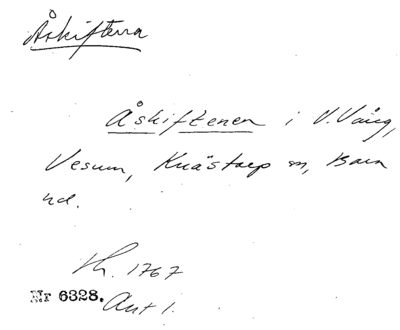 Åskiftena
Åskiftenen i V. Vång,
Vesum, Knästorp sn, Bara
hd.
Kh. 1767
Nr 6328. Akt 1.